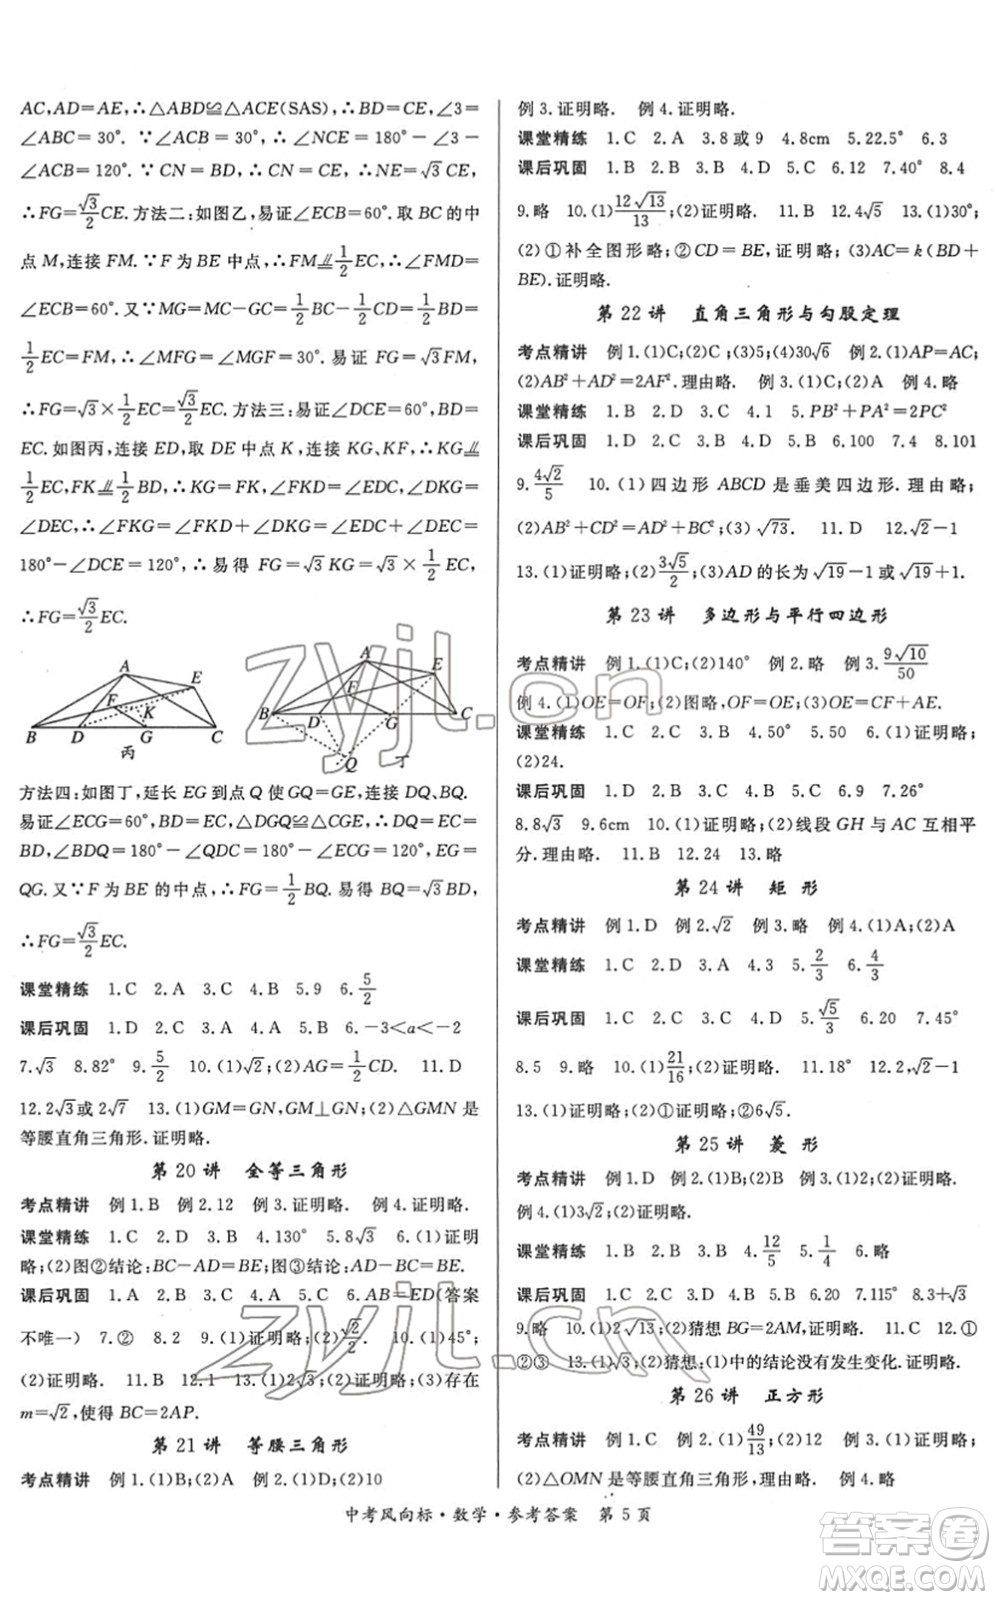 AC,AD=AE,∴△ABD≌△ACE(SAS),∴BD=CE,∠3=
∠ABC=30°.∵∠ACB=30°,∴∠NCE=180°-∠3-
∠ACB=120°.∵CN=BD,∴CN=CE,∴NE=√3CE,
∴FG=√3/2CE.方法二:如图乙,易证∠ECB=60°.取BC的中
点M,连接FM.∵F为BE中点,∴FM⫽1/2EC,∴∠FMD=
∠ECB=60°.又∵MG=MC-GC=1/2BC-1/2CD=1/2BD=
1/2EC=FM,∴∠MFG=∠MGF=30°.易证FG=√3FM,
∴FG=√3×1/2EC=√3/2EC.方法三:易证∠DCE=60°,BD=
EC.如图丙,连接ED,取DE中点K,连接KG、KF,∴KG⫽
1/2EC,FK⫽1/2BD,∴KG=FK,∠FKD=∠EDC,∠DKG=
∠DEC,∴∠FKG=∠FKD+∠DKG=∠EDC+∠DEC=
180°-∠DCE=120°,∴易得FG=√3KG=√3×1/2EC,
∴FG=√3/2EC.
A E F K B D G C 丙
A E F B D G C Q 丁
方法四:如图丁,延长EG到点Q使GQ=GE,连接DQ、BQ.
易证∠ECG=60°,BD=EC,△DGQ≌△CGE,∴DQ=EC=
BD,∠BDQ=180°-∠QDC=180°-∠ECG=120°,EG=
QG.又∵F为BE的中点,∴FG=1/2BQ.易得BQ=√3BD=√3EC,
∴FG=√3/2EC.
课堂精练 1.C 2.A 3.C 4.B 5.9 6.5/2
课后巩固 1.D 2.C 3.A 4.A 5.B 6.-3<a<-2
7.√3 8.82° 9.5/2 10.(1)√2;(2)AG=1/2CD. 11.D
12.2√3或2√7 13.(1)GM=GN,GM⊥GN;(2)△GMN是
等腰直角三角形.证明略.
第20讲 全等三角形
考点精讲 例1.B 例2.12 例3.证明略. 例4.证明略.
课堂精练 1.C 2.D 3.C 4.130° 5.8√3 6.(1)证明
略;(2)图②结论:BC-AD=BE.图③结论:AD-BC=BE.
课后巩固 1.A 2.B 3.C 4.B 5.C 6.AB=ED(答案
不唯一) 7.② 8.2 9.(1)证明略;(2)√2/2 10.(1)45°;
(2)证明略. 11.B 12.1 13.(1)2√3;(2)证明略;(3)存在
m=√2,使得BC=2AP.
第21讲 等腰三角形
考点精讲 例1.(1)B;(2)A 例2.(1)D;(2)10
例3.证明略. 例4.证明略.
课堂精练 1.C 2.A 3.8或9 4.8cm 5.22.5° 6.3
课后巩固 1.B 2.B 3.B 4.D 5.C 6.12 7.40° 8.4
9.略 10.(1)12√13/13;(2)证明略. 11.B 12.4√5 13.(1)30°;
(2)①补全图形略;②CD=BE,证明略;(3)AC=k(BD+
BE).证明略.
第22讲 直角三角形与勾股定理
考点精讲 例1.(1)C;(2)C;(3)5;(4)30√6 例2.(1)AP=AC;
(2)AB²+AD²=2AF².理由略. 例3.(1)C;(2)A 例4.略
课堂精练 1.B 2.D 3.C 4.1 5.PB²+PA²=2PC²
课后巩固 1.C 2.C 3.D 4.D 5.B 6.100 7.4 8.101
9.4√2/5 10.(1)四边形ABCD是垂美四边形.理由略;
(2)AB²+CD²=AD²+BC²;(3)√73. 11.D 12.√2-1
13.(1)证明略;(2)3√5/2;(3)AD的长为√19-1或√19+1.
第23讲 多边形与平行四边形
考点精讲 例1.(1)C;(2)140° 例2.略 例3.9√10/50
例4.(1)OE=OF;(2)图略,OF=OE;(3)OE=CF+AE.
课堂精练 1.B 2.D 3.B 4.50° 5.50 6.(1)证明略;
(2)24.
课后巩固 1.B 2.B 3.D 4.A 5.C 6.9 7.26°
8.8√3 9.6cm 10.(1)证明略;(2)线段GH与AC互相平
分.理由略. 11.B 12.24 13.略
第24讲 矩形
考点精讲 例1.D 例2.√2 例3.略 例4.(1)A;(2)A
课堂精练 1.B 2.D 3.A 4.3 5.2/3 6.4/3
课后巩固 1.C 2.A 3.B 4.C 5.√5/3 6.20 7.45°
8.5 9.略 10.(1)21/16;(2)证明略. 11.18° 12.2,√5-1
13.(1)证明略;(2)①证明略;②6√5.
第25讲 菱形
考点精讲 例1.D 例2.(1)B;(2)B 例3.(1)2;(2)证明略.
例4.(1)3√2;(2)证明略.
课堂精练 1.B 2.B 3.D 4.12/5 5.1/4 6.略
课后巩固 1.C 2.C 3.D 4.B 5.B 6.20 7.115° 8.3+√3
9.略 10.(1)2√13;(2)猜想BG=2AM,证明略. 11.C 12.①
②③ 13.(1)√3;(2)猜想:(1)中的结论没有发生变化.证明略.
第26讲 正方形
考点精讲 例1.C 例2.(1)49/13;(2)略 例3.(1)证明略;
(2)△OMN是等腰直角三角形,理由略. 例4.略
中考风向标·数学·参考答案 第5页
zyjl.cn
zyjl.cn
答案圈
MXQE.COM